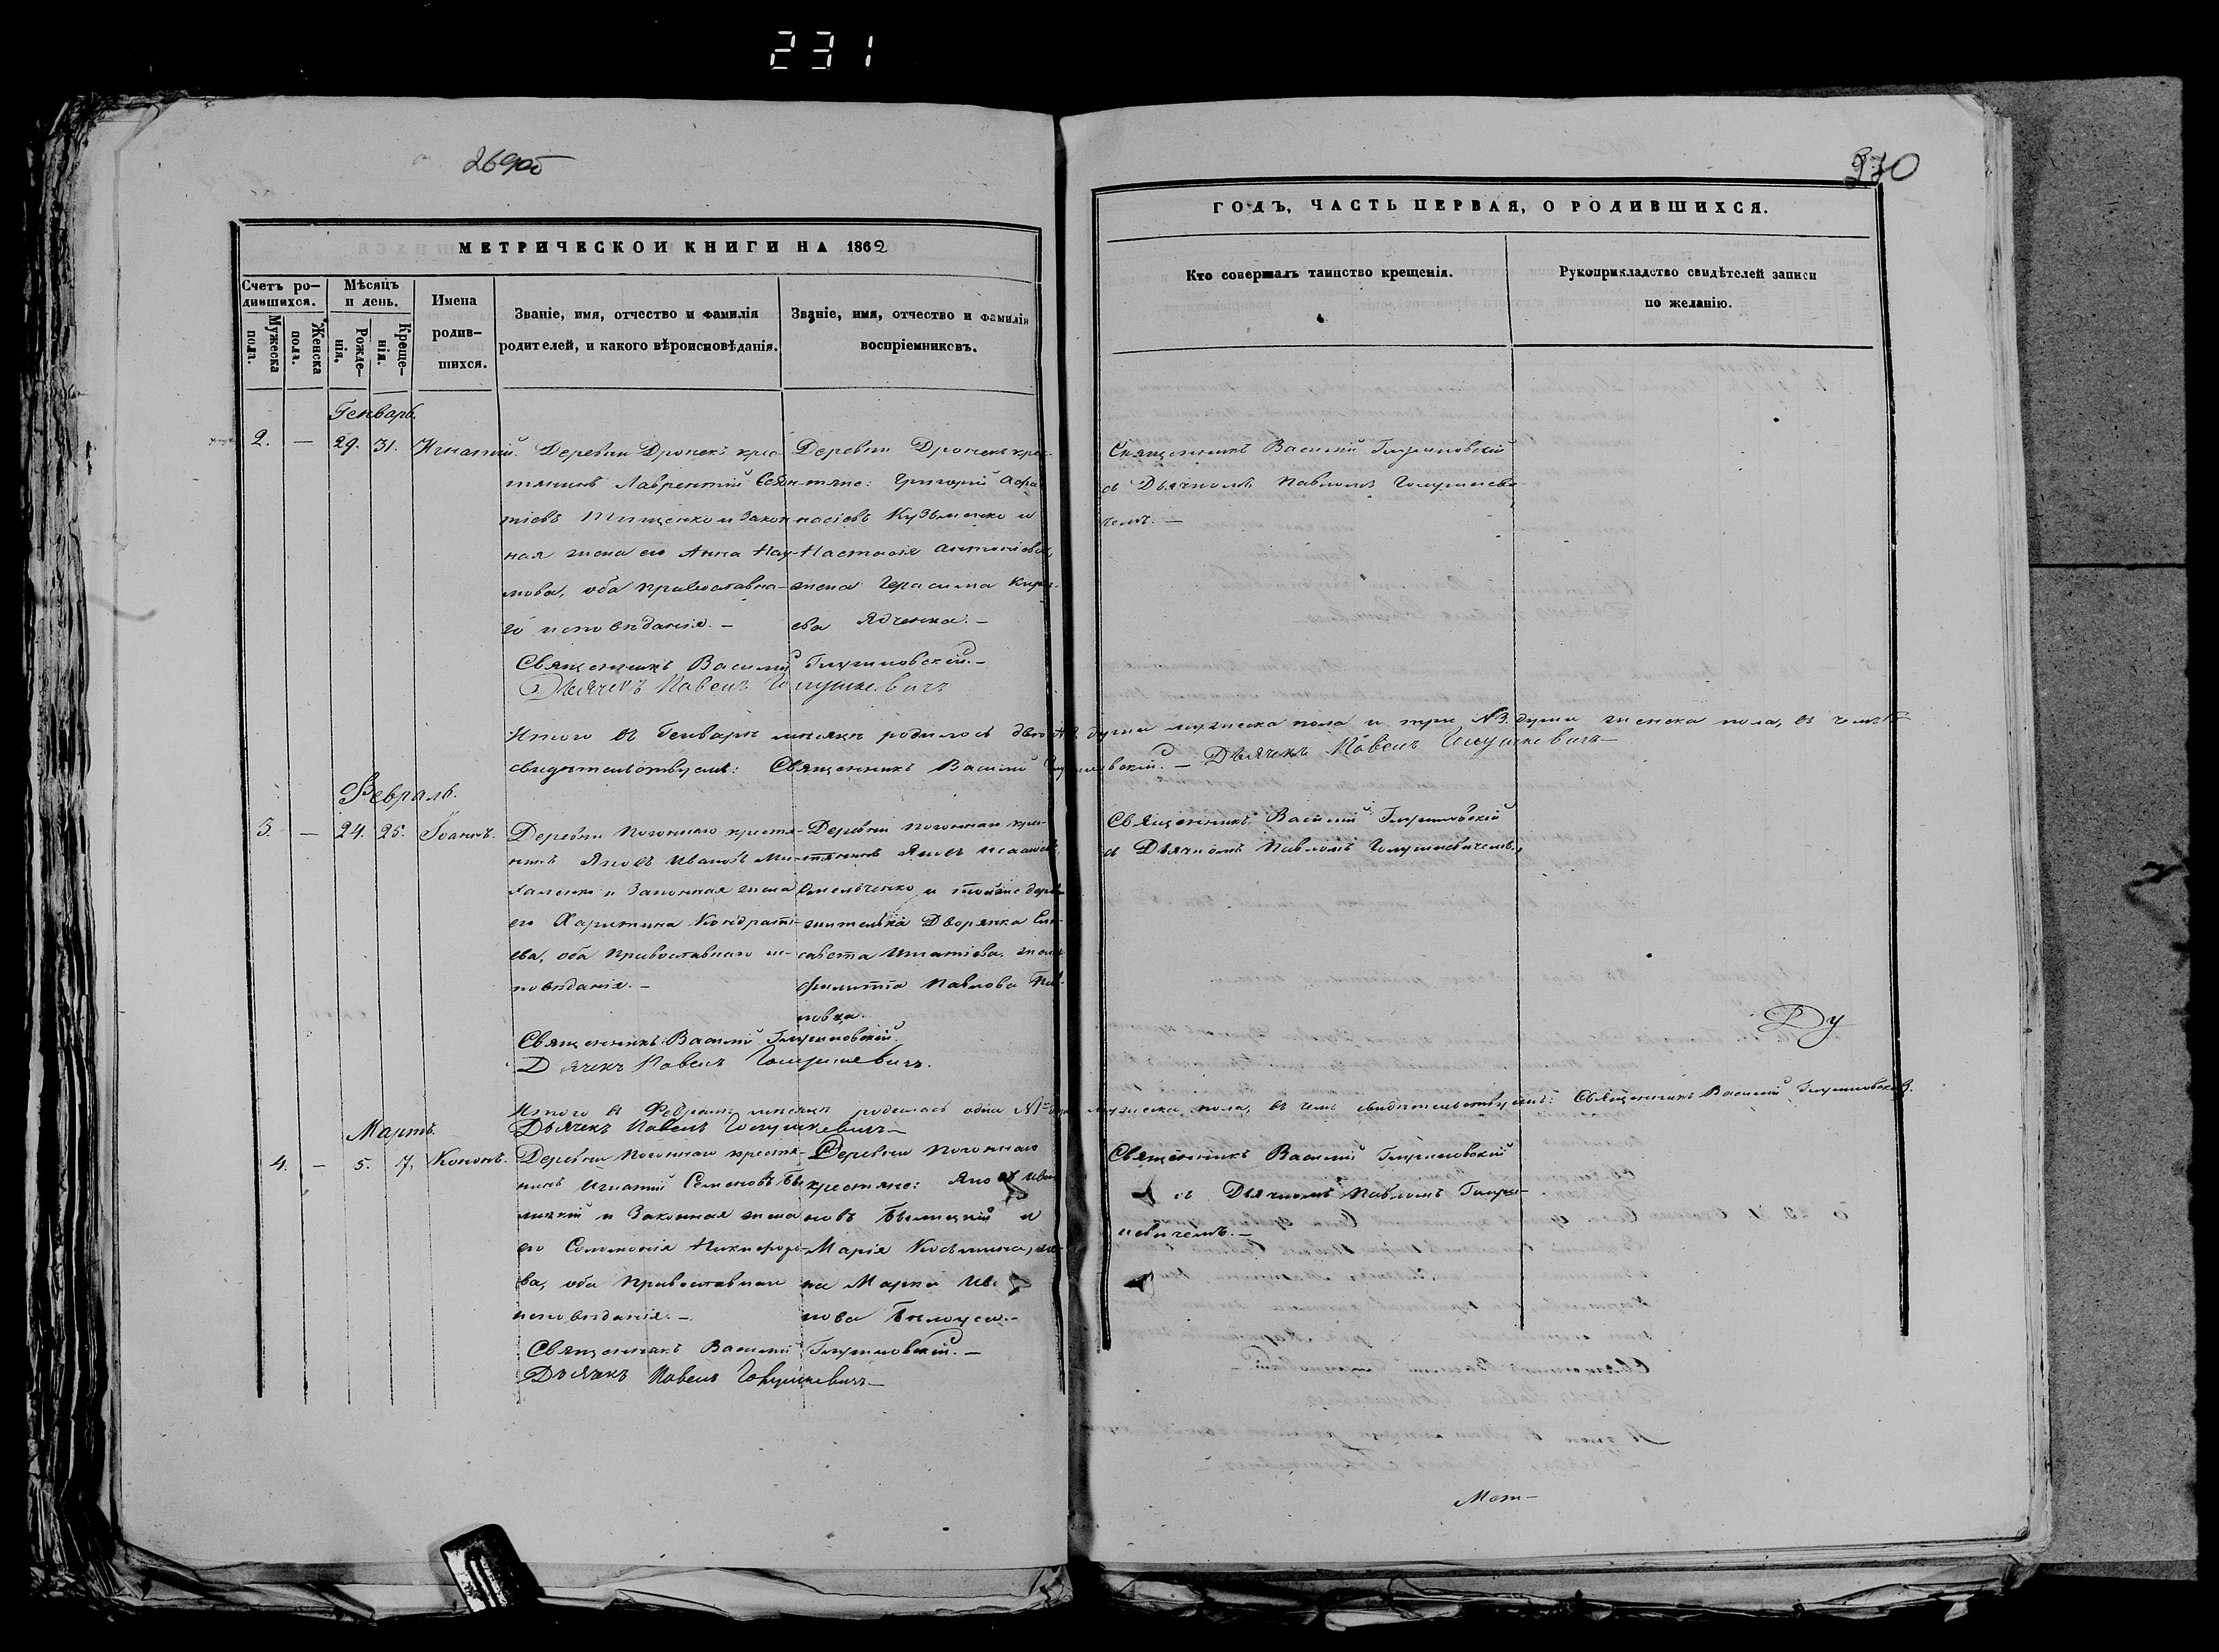 231
269об
270
МЕТРИЧЕСКОЙ КНИГИ НА 1862
ГОДЪ, ЧАСТЬ ПЕРВАЯ, О РОДИВШИХСЯ.
Счетъ ро-
дившихся.
Мужеска
пола.
Женска
пола.
Мѣсяцъ
и день.
Рожде-
нія.
Креще-
нія.
Имена
родив-
шихся.
Званіе, имя, отчество и фамилія
родителей, и какого вѣроисповѣданія.
Званіе, имя, отчество и фамилія
воспріемниковъ.
Кто совершалъ таинство крещенія.
Рукоприкладство свидѣтелей записи
по желанію.
Генварь.
2. — 29. 31. Игнатій.
Деревни Дронекъ крес-
тянинъ Лаврентій
тіевъ Тищенко и закон-
ная жена его Анна Нау-
мова, оба православна-
го исповѣданія. —
Деревни Дронекъ крес-
тяне: Григорій Афа-
насіевъ Кузьменко и
Настасія Антоніева,
жена Герасима
ева Ядченка. —
Священникъ Василій
съ Дьячкомъ Павломъ
чемъ. —
Священникъ Василій
Дьячекъ Павелъ
Итого въ Генварѣ мѣсяцѣ родилось две №2. души мужеска пола и три №3. души женска пола, въ чемъ
свидѣтельствуемъ: Священникъ Василій
Дьячекъ Павелъ
Февраль.
3. — 24. 25. Іоаннъ.
Деревни Погоннаго крестя-
нинъ Яковъ Ивановъ Ми-
халенко и законная жена
его Харитина Кондрати-
ева, оба православнаго ис-
повѣданія. —
Деревни Погоннаго крес-
тянинъ Яковъ
Омельченко и тойже дерев
жителька Дворянка Ели-
савета Игнатіева, жена
Филиппа Павлова
Священникъ Василій
съ Дьячкомъ Павломъ
Священникъ Василій
Дьячекъ Павелъ
Ду
Итого въ Февралѣ мѣсяцѣ родилась одна №1 душа мужеска пола, въ чемъ свидѣтельствуемъ: Священникъ Василій
Дьячекъ Павелъ
Мартъ.
4. — 5. 7. Кононъ.
Деревни Погоннаго крестя-
нинъ Игнатій Семеновъ Бѣ
лицкій и законная жена
его Соломонія Никифоро-
ва, оба православнаго
исповѣданія. —
Деревни Погоннаго
крестяне: Яковъ Ива
новъ Бѣлицкій и
Марія Козьмина, же-
на Марка Ива
нова Бѣлоуса. —
Священникъ Василій
съ Дьячкомъ Павломъ
чемъ. —
Священникъ Василій
Дьячекъ Павелъ
Мет-